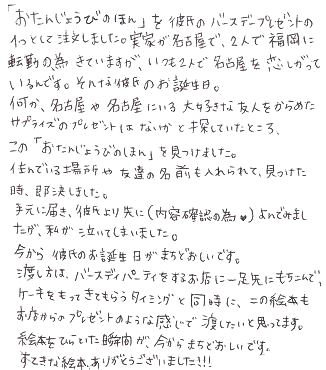 「おたんじょうびのほん」を彼氏のバースデープレゼントの
1つとして注文しました。実家が名古屋で、2人で福岡に
転勤の為きていますが、いつも2人で名古屋を恋しがって
いるんです。そんな彼氏のお誕生日。
何か、名古屋や名古屋にいる大好きな友人をからめた
サプライズのプレゼントはないかと探していたところ、
この「おたんじょうびのほん」を見つけました。
住んでいる場所や友達の名前も入れられて、見つけた
時、即決しました。
手元に届き、彼氏より先に(内容確認の為♥)よんでみまし
たが、私が泣いてしまいました。
今から彼氏のお誕生日がまちどおしいです。
渡し方は、バースディパーティをするお店に一足先にもちこんで、
ケーキをもってきてもらうタイミングと同時に、この絵本も
お店からのプレゼントのような感じで渡したいと思ってます。
絵本をひらいた瞬間が、今からまちどおしいです。
すてきな絵本、ありがとうございました!!!